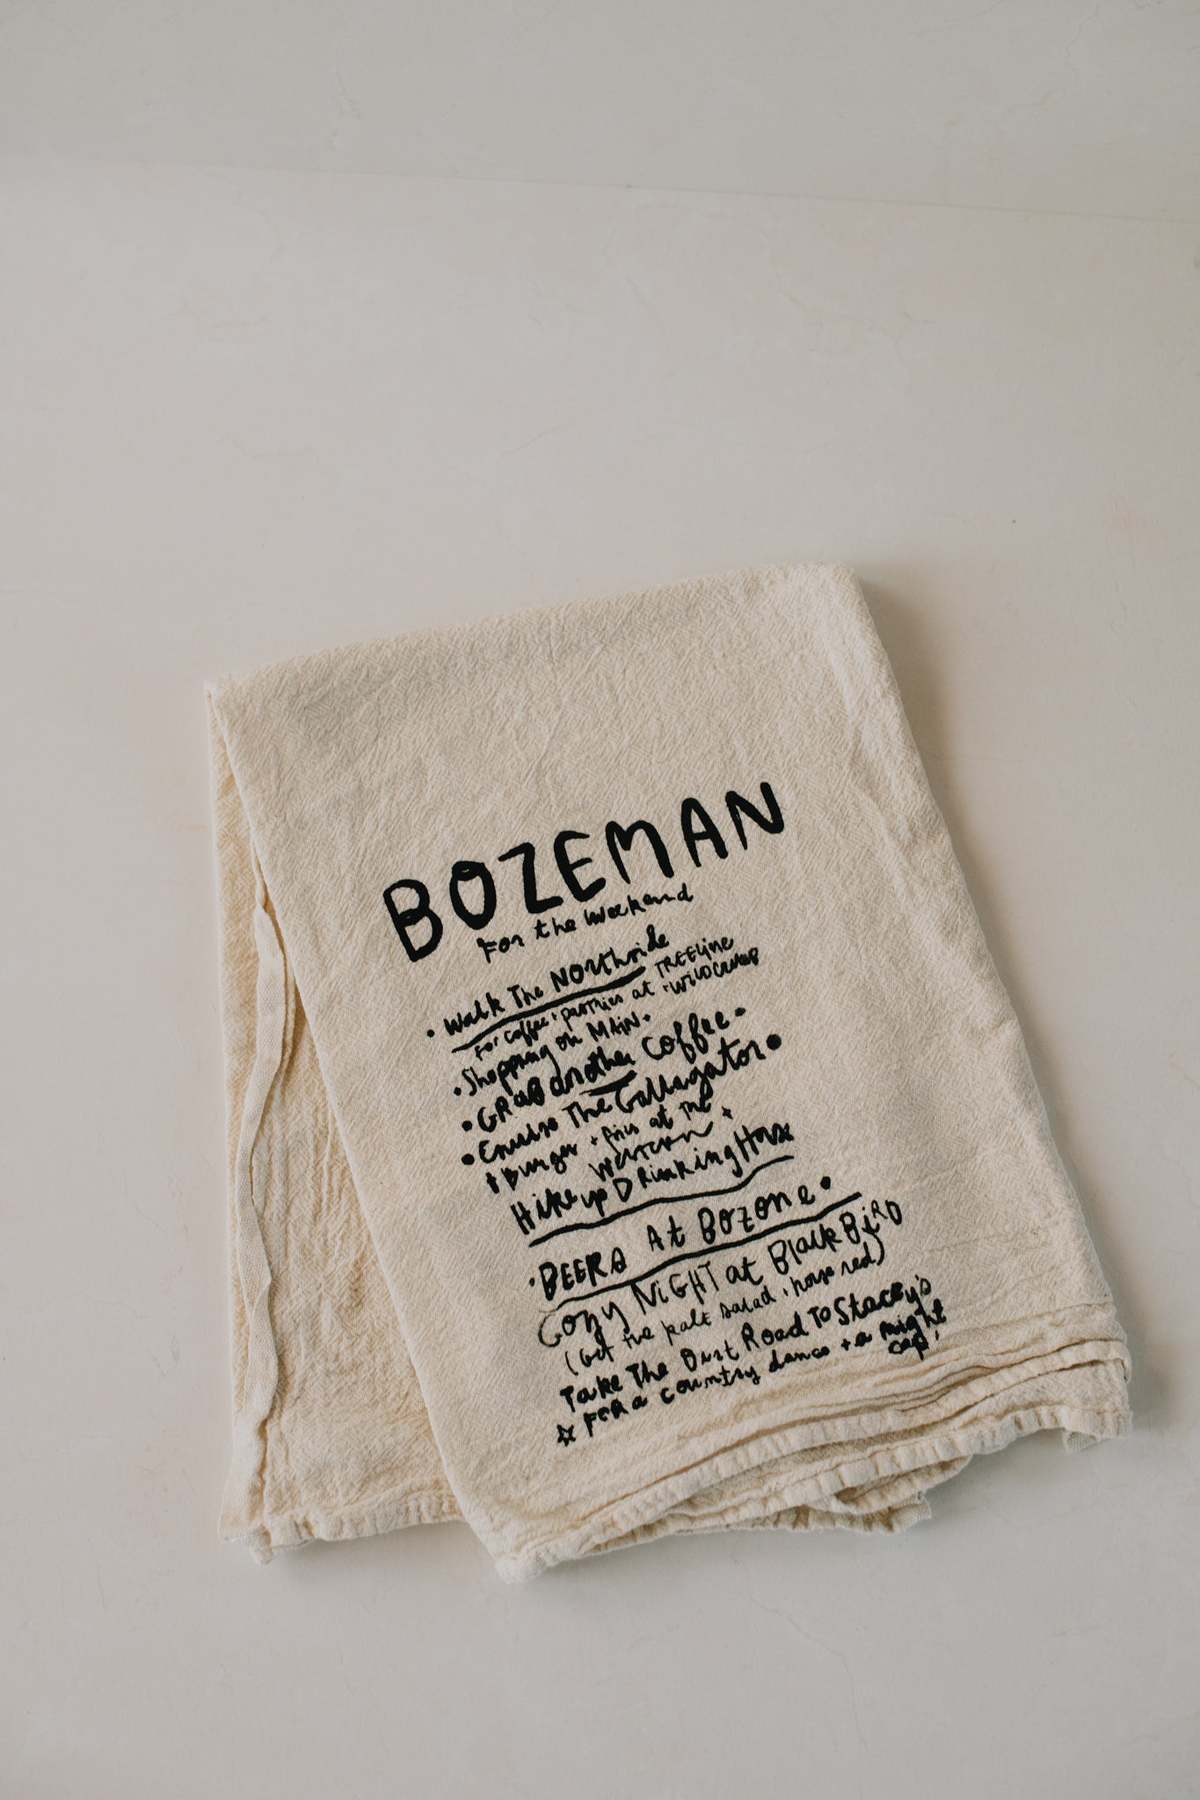 BOZEMAN
For the Weekend
• Walk The Northside
For coffee + pastries at TREELINE + WILD CRUMB
• Shopping on MAIN •
• GRAB another coffee •
• Cruise The Gallagator •
+ Burger + fries at The Western +
Hike up Drinking Horse
• BEERS At Bozone •
Cozy NiGHT at BlackBiRD
(Get the kale salad + house red)
Take The Dirt Road To Stacey's
☆ FOR a country dance + a night cap!